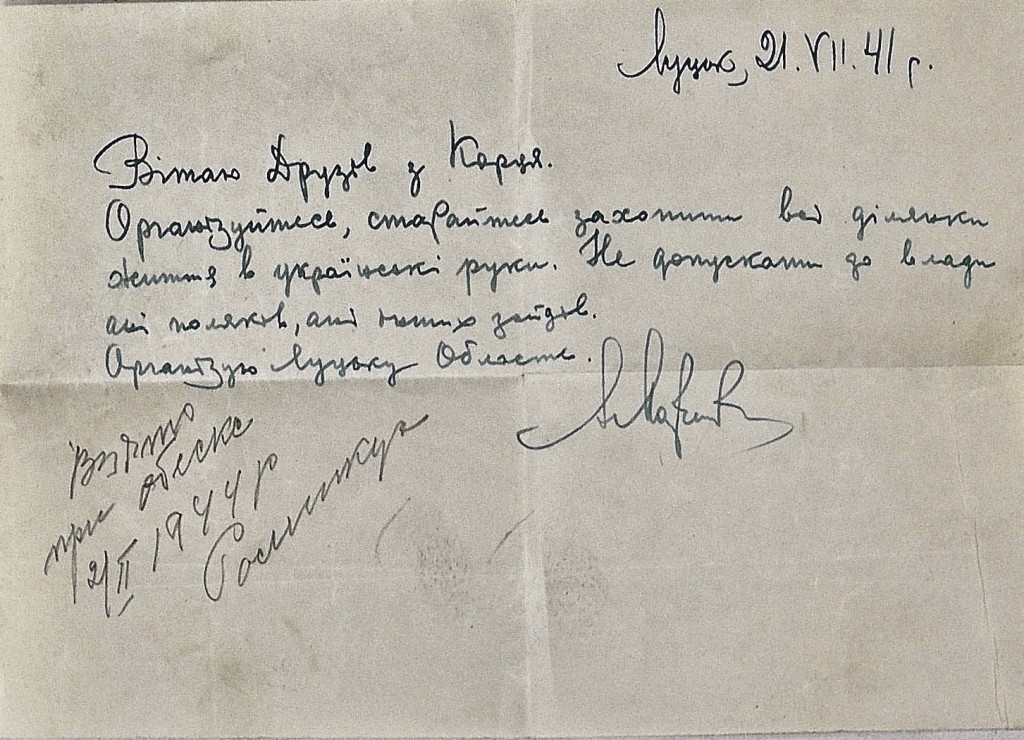 Луцьк, 21.VII.41 р.
Вітаю Друзів з Корця.
Організуйтесь, старайтесь захопити всі ділянки
життя в українські руки. Не допускати до влади
ані поляків, ані інших зайдів.
Організую Луцьку Область.
взято
при обеске
2/II 1944 р